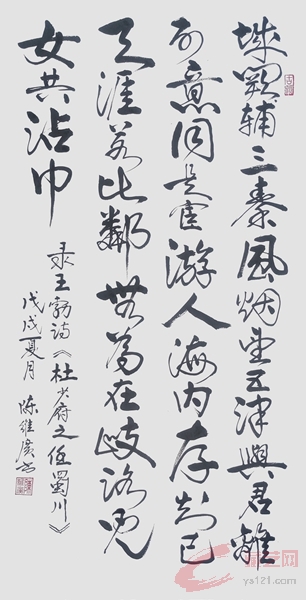 城闕輔三秦風烟望五津與君離
别意同是宦游人海内存知己
天涯若比鄰無為在歧路兒
女共沾巾
录王勃诗《杜少府之任蜀川》
戊戌夏月 陈维廣书
ys121.com